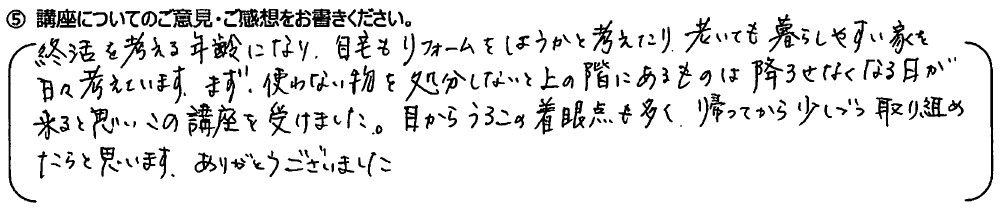 ⑤ 講座についてのご意見・ご感想をお書きください。
終活を考える年齢になり、自宅もリフォームをしようかと考えたり、老いても暮らしやすい家を
日々考えています。まず、使わない物を処分しないと上の階にあるものは降ろせなくなる日が
来ると思いこの講座を受けました。目からうろこの着眼点も多く、帰ってから少しづつ取り組め
たらと思います。ありがとうございました